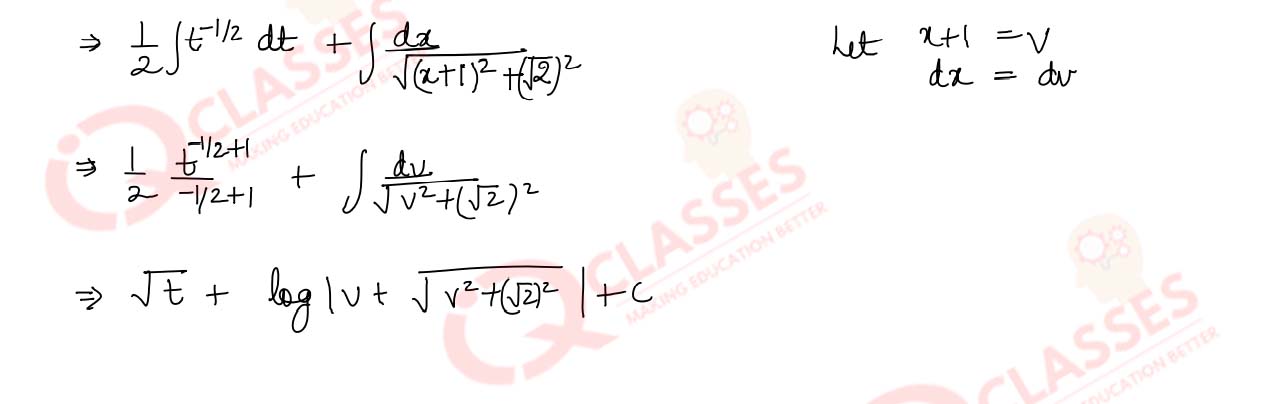 ⇒ 1/2 ∫ t^{-1/2} dt + ∫ dx/√((x+1)² + (√2)²) Let x+1 = v
dx = dv
⇒ 1/2 t^{-1/2+1}/(-1/2+1) + ∫ dv/√(v² + (√2)²)
⇒ √t + log |v + √(v² + (√2)²)| + c
iQ CLASSES
MAKING EDUCATION BETTER
iQ CLASSES
MAKING EDUCATION BETTER
CLASSES
EDUCATION BETTER